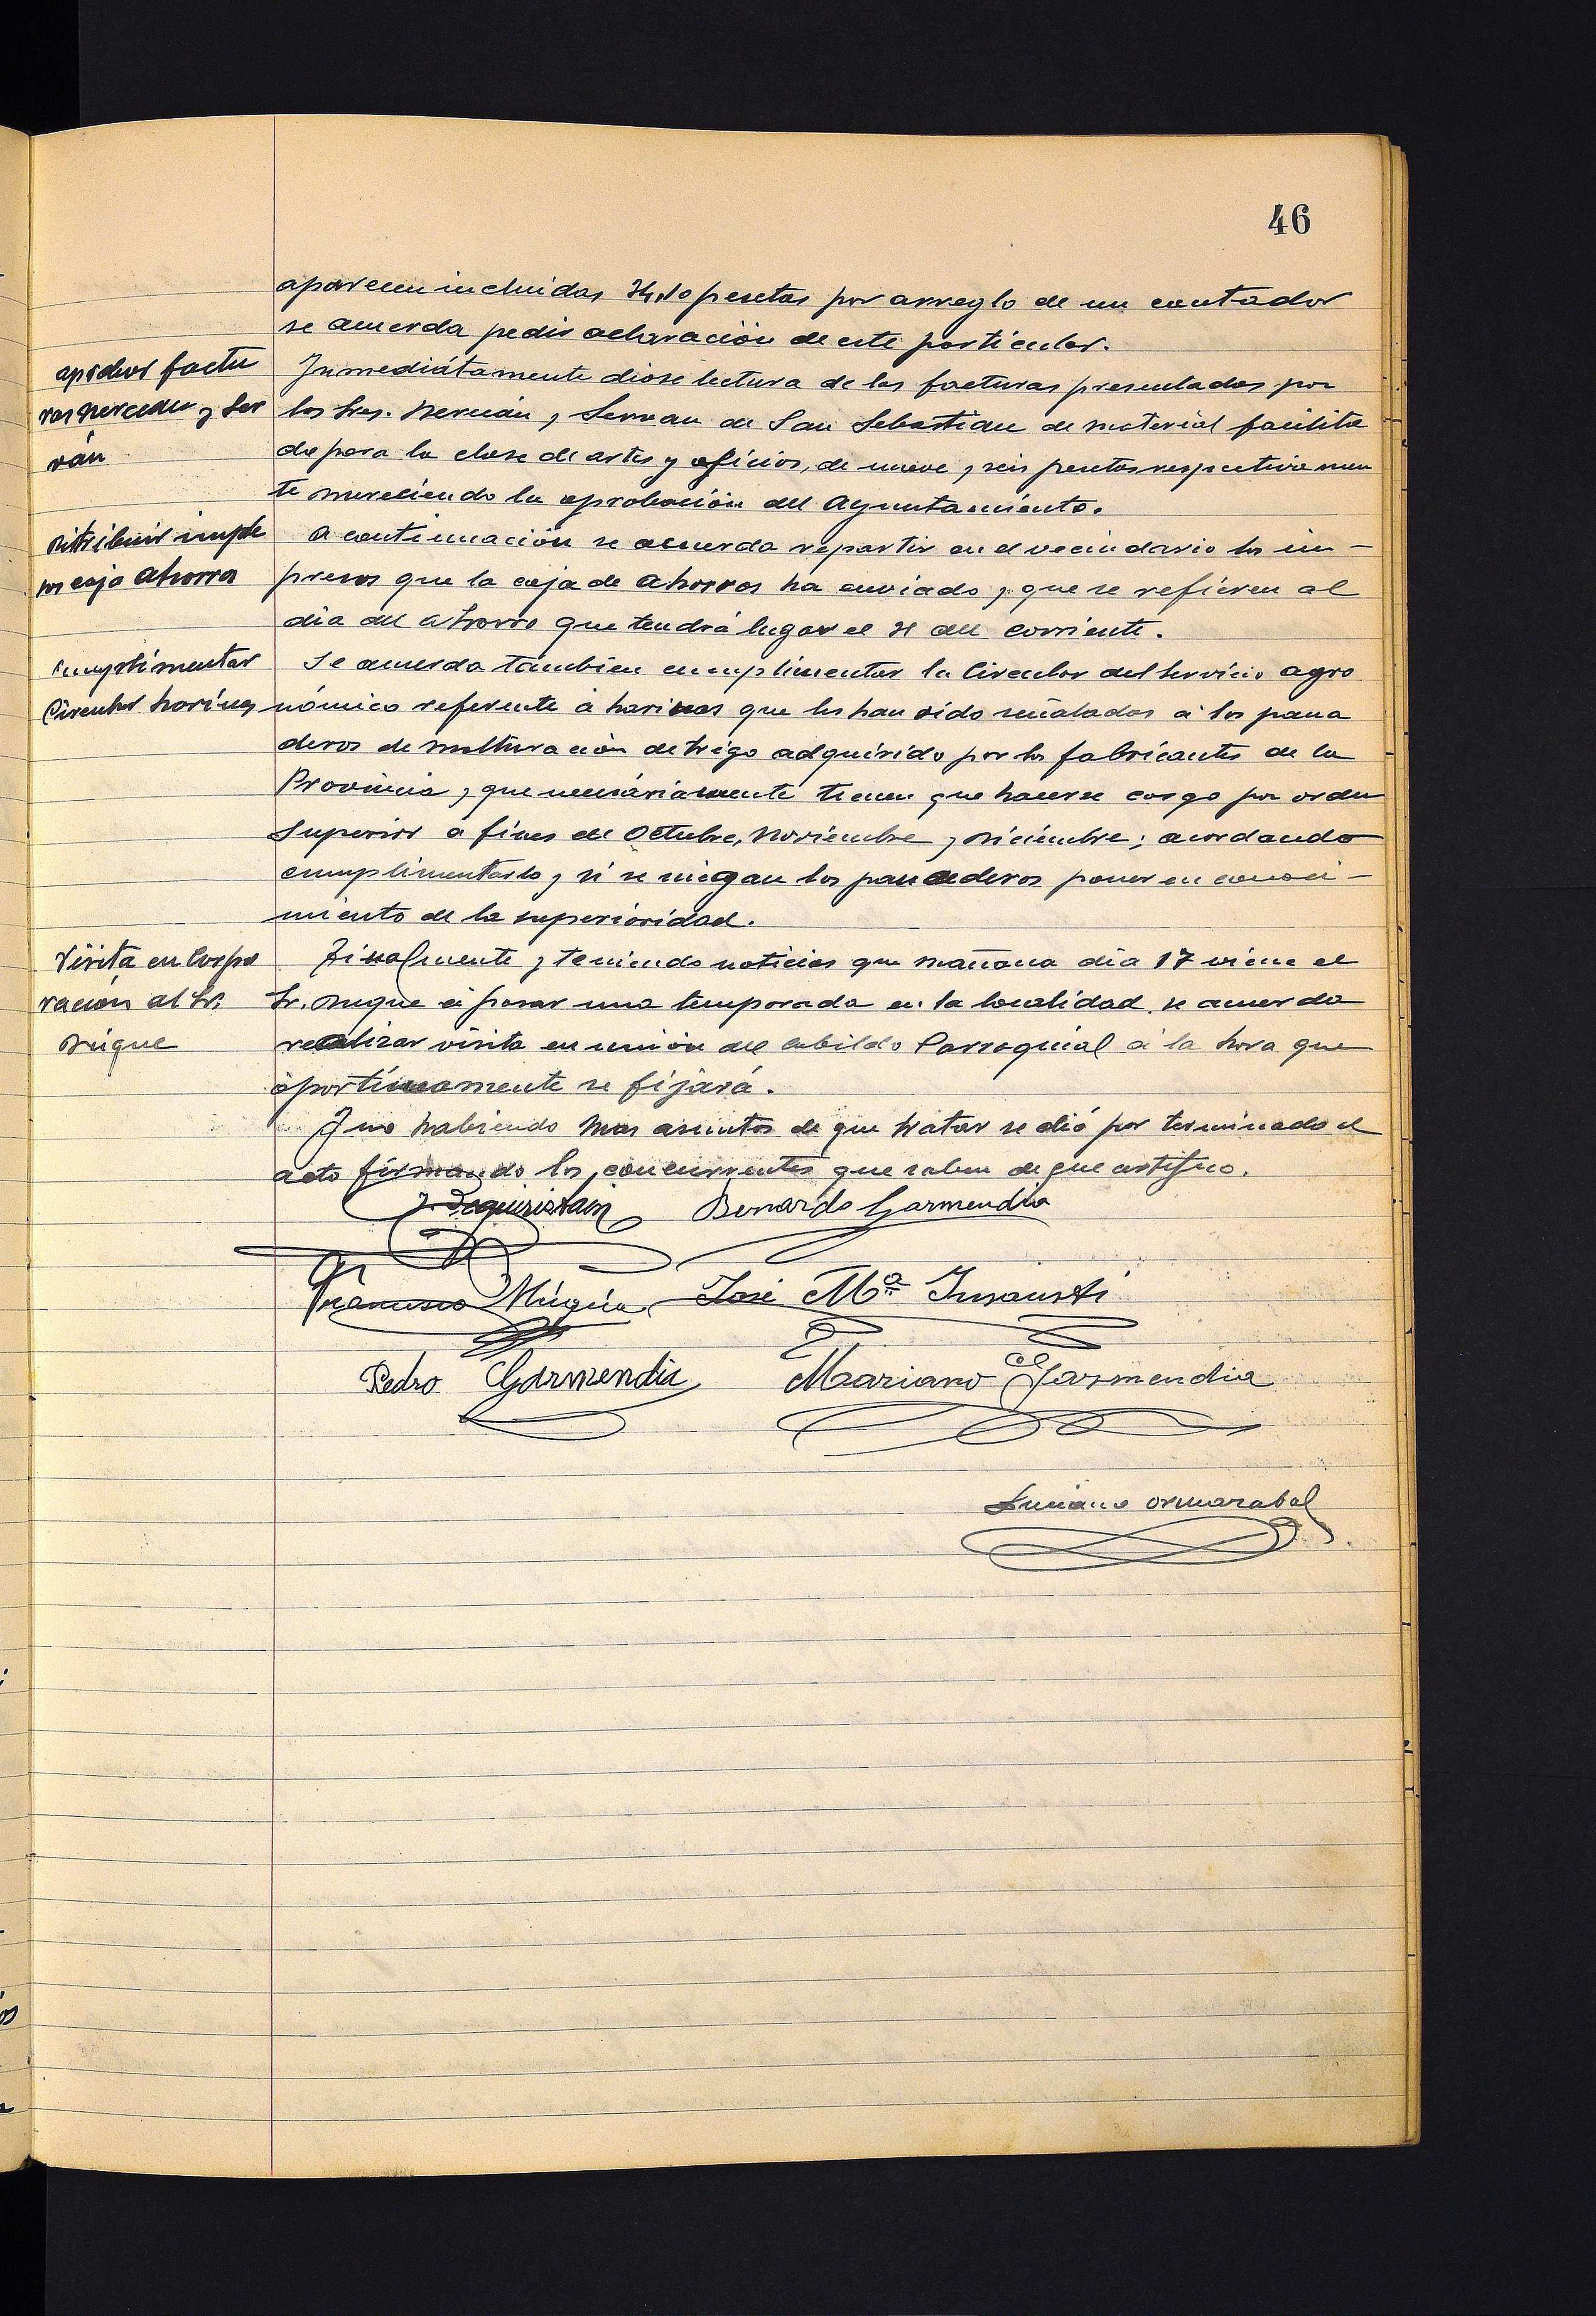 46
aparecen incluidas pesetas por arreglo de un contador
se acuerda pedir aclaración de este particular.
aprobar factu
ras y Ser
rán
Inmediátamente diose lectura de las facturas presentadas por
los Sres. y Serran de San Sebastian de material facilita
do para la clase de artes y oficios, de nueve y seis pesetas respectivamen
te mereciendo la aprobación del Ayuntamiento.
Distribuir impre
sos caja Ahorros
A continuación se acuerda repartir en el vecindario los im-
presos que la caja de Ahorros ha enviado y que se refieren al
dia del ahorro que tendrá lugar el 31 del corriente.
Cumplimentar
Circular harinas
Se acuerda tambien cumplimentar la Circular del Servicio agro
nómico referente á harinas que les han sido señaladas á los pana
deros de molturación de trigo adquirido por los fabricantes de la
Provincia y que necesáriamente tienen que hacerse cargo por orden
Superior a fines de Octubre, Noviembre y Diciembre; acordando
cumplimentarlo y si se niegan los panaderos poner en conoci-
miento de la superioridad.
Visita en Corpo
ración al Sr.
Duque
Finalmente y teniendo noticias que mañana dia 17 viene el
Sr. Duque á pasar una temporada en la localidad se acuerda
realizar visita en unión del cabildo Parroquial á la hora que
oportunamente se fijará.
Y no habiendo mas asuntos de que tratar se dió por terminado el
acto firmando los concurrentes que saben de que certifico.
J. Eguiristain Bernardo Garmendia
Francisco Múgica José Mª Insausti
Pedro Garmendia Mariano Garmendia
Luciano Ormazabal